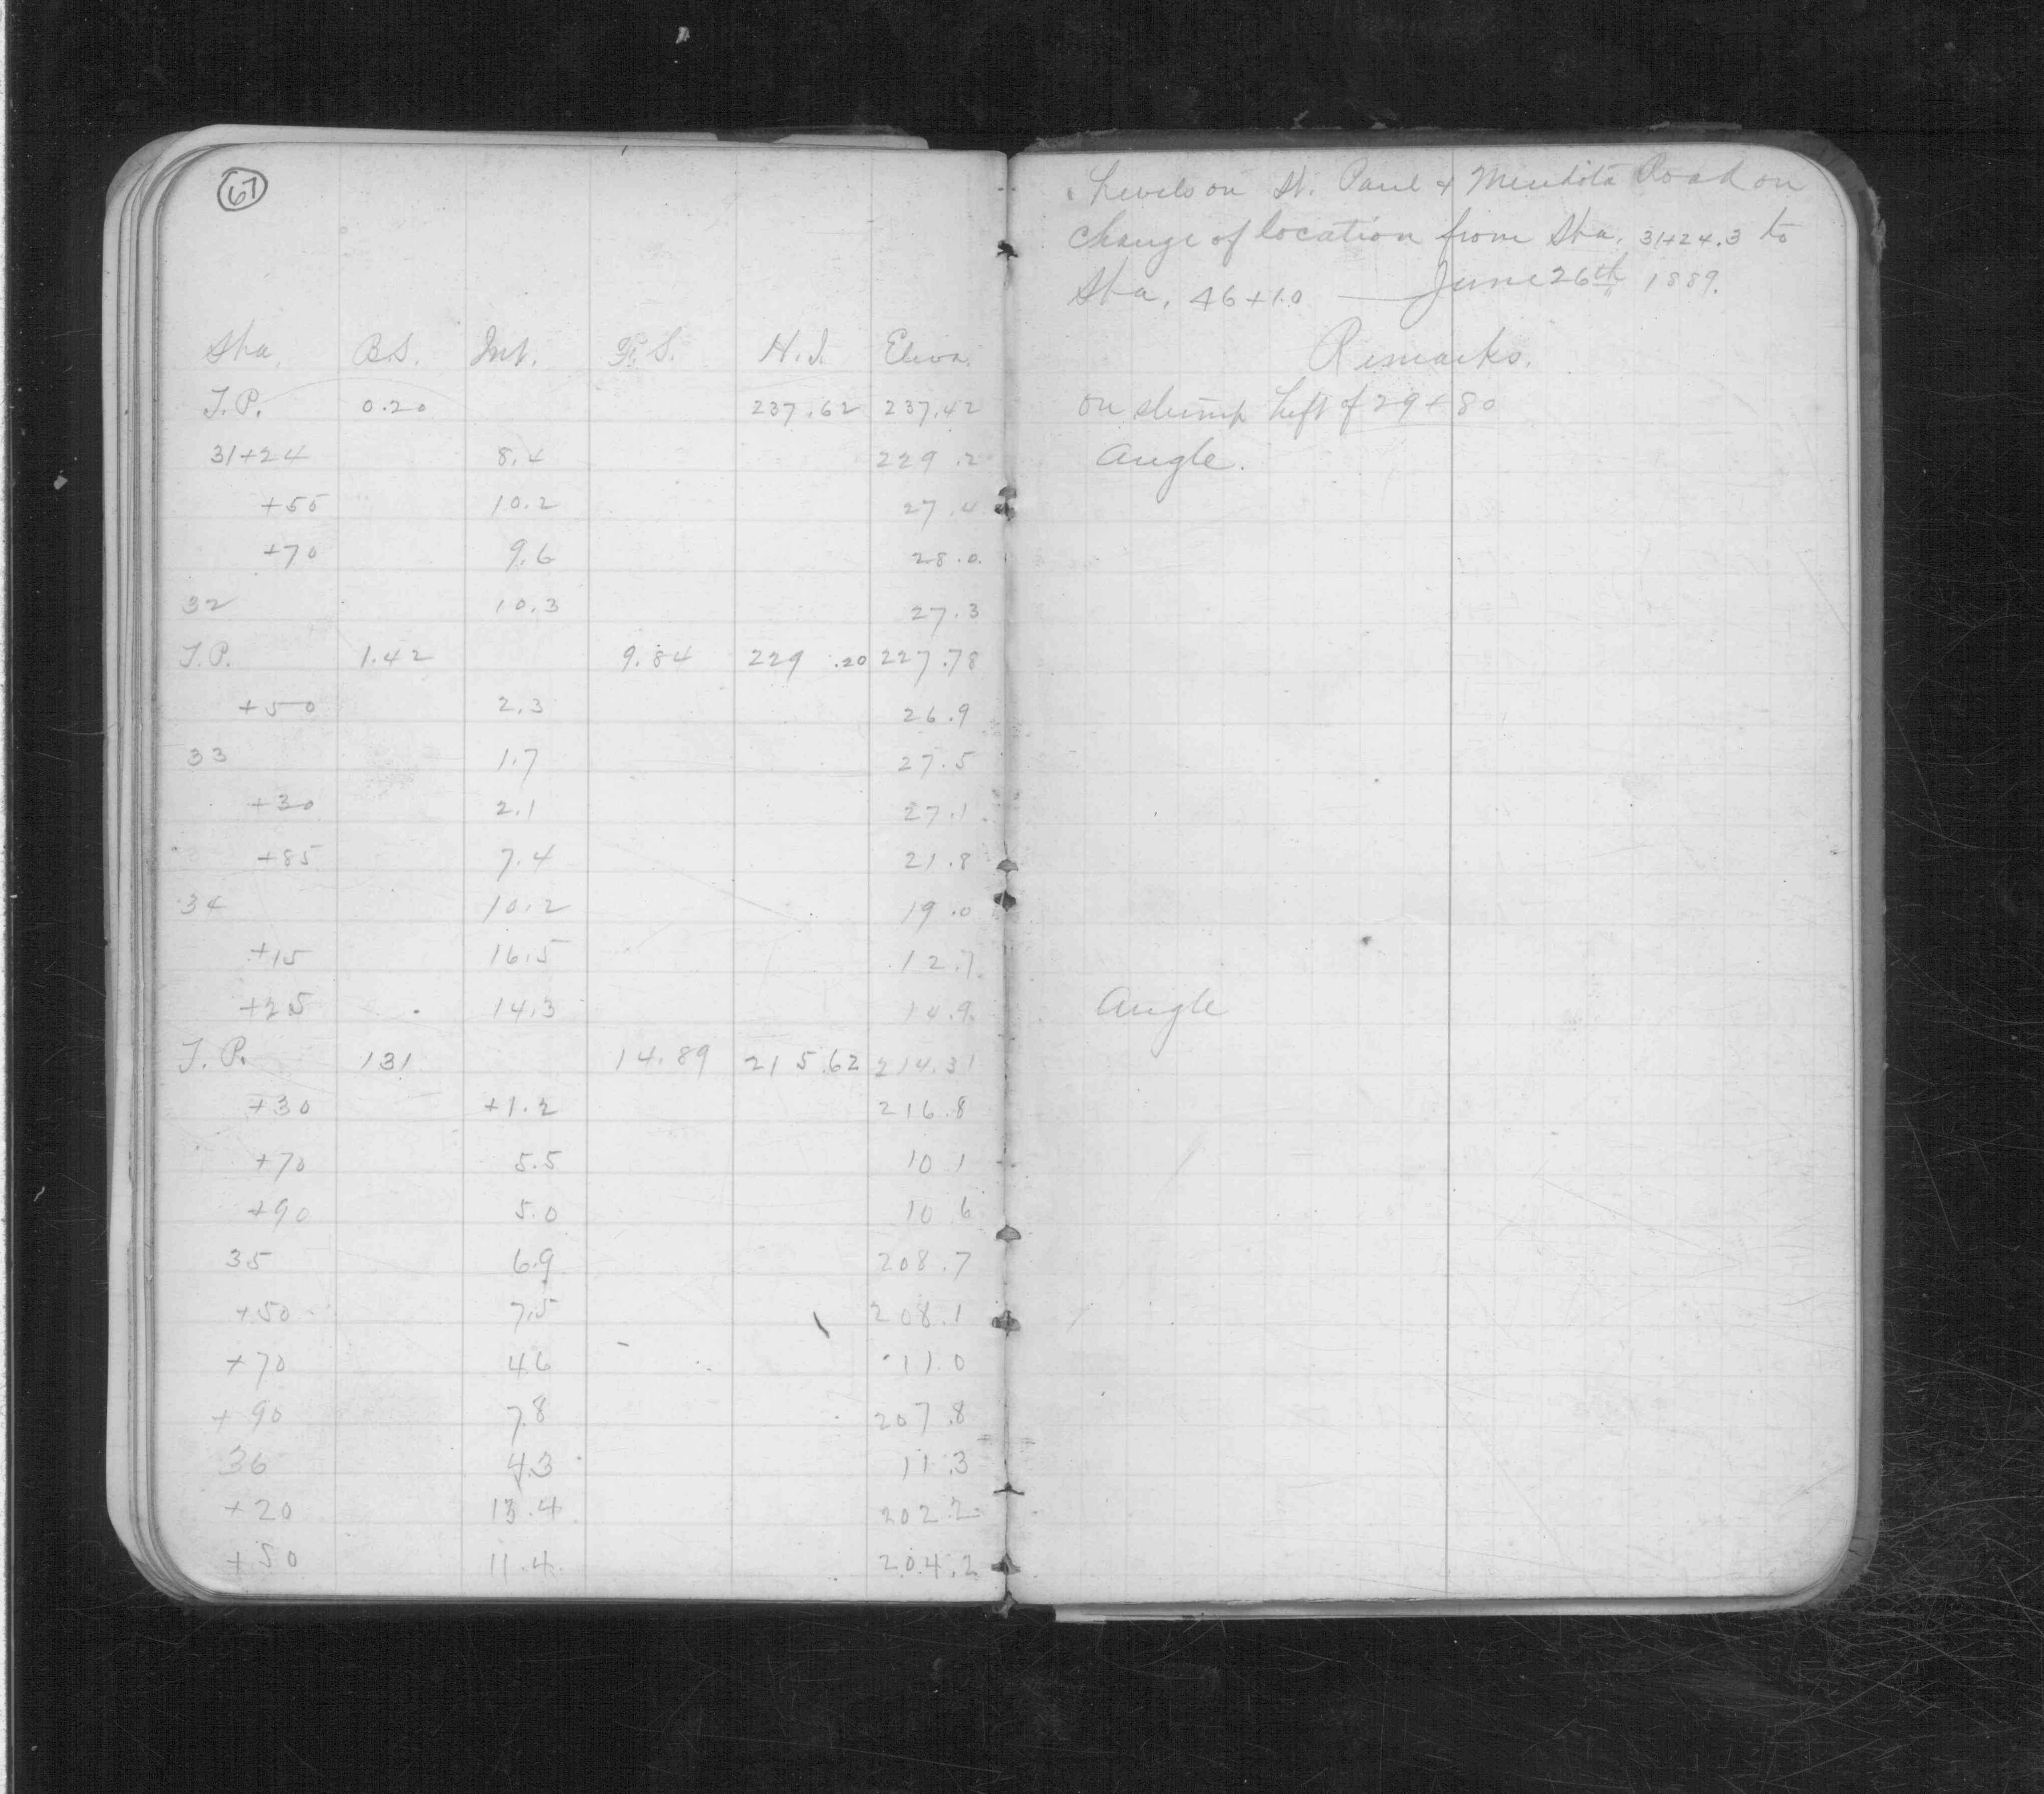 67
Levels on St. Paul & Mendota Road on
change of location from Sta. 31+24.3 to
Sta. 46+10 — June 26th 1889.
Sta. B.S. Int. F.S. H.I. Eleva. Remarks.
T.P. 0.20 237.62 237.42 on stump Left of 29+80
31+24 8.4 229.2 Angle.
+55 10.2 27.4
+70 9.6 28.0
32 10.3 27.3
T.P. 1.42 9.84 229.20 227.78
+50 2.3 26.9
33 1.7 27.5
+30 2.1 27.1
+85 7.4 21.8
34 10.2 19.0
+15 16.5 12.7
+25 14.3 14.9 Angle
T.P. 131 14.89 215.62 214.31
+30 +1.2 216.8
+70 5.5 10 1
+90 5.0 10 6
35 6.9 208.7
+50 7.5 208.1
+70 4.6 11.0
+90 7.8 207.8
36 4.3 11.3
+20 13.4 202.2
+50 11.4 204.2